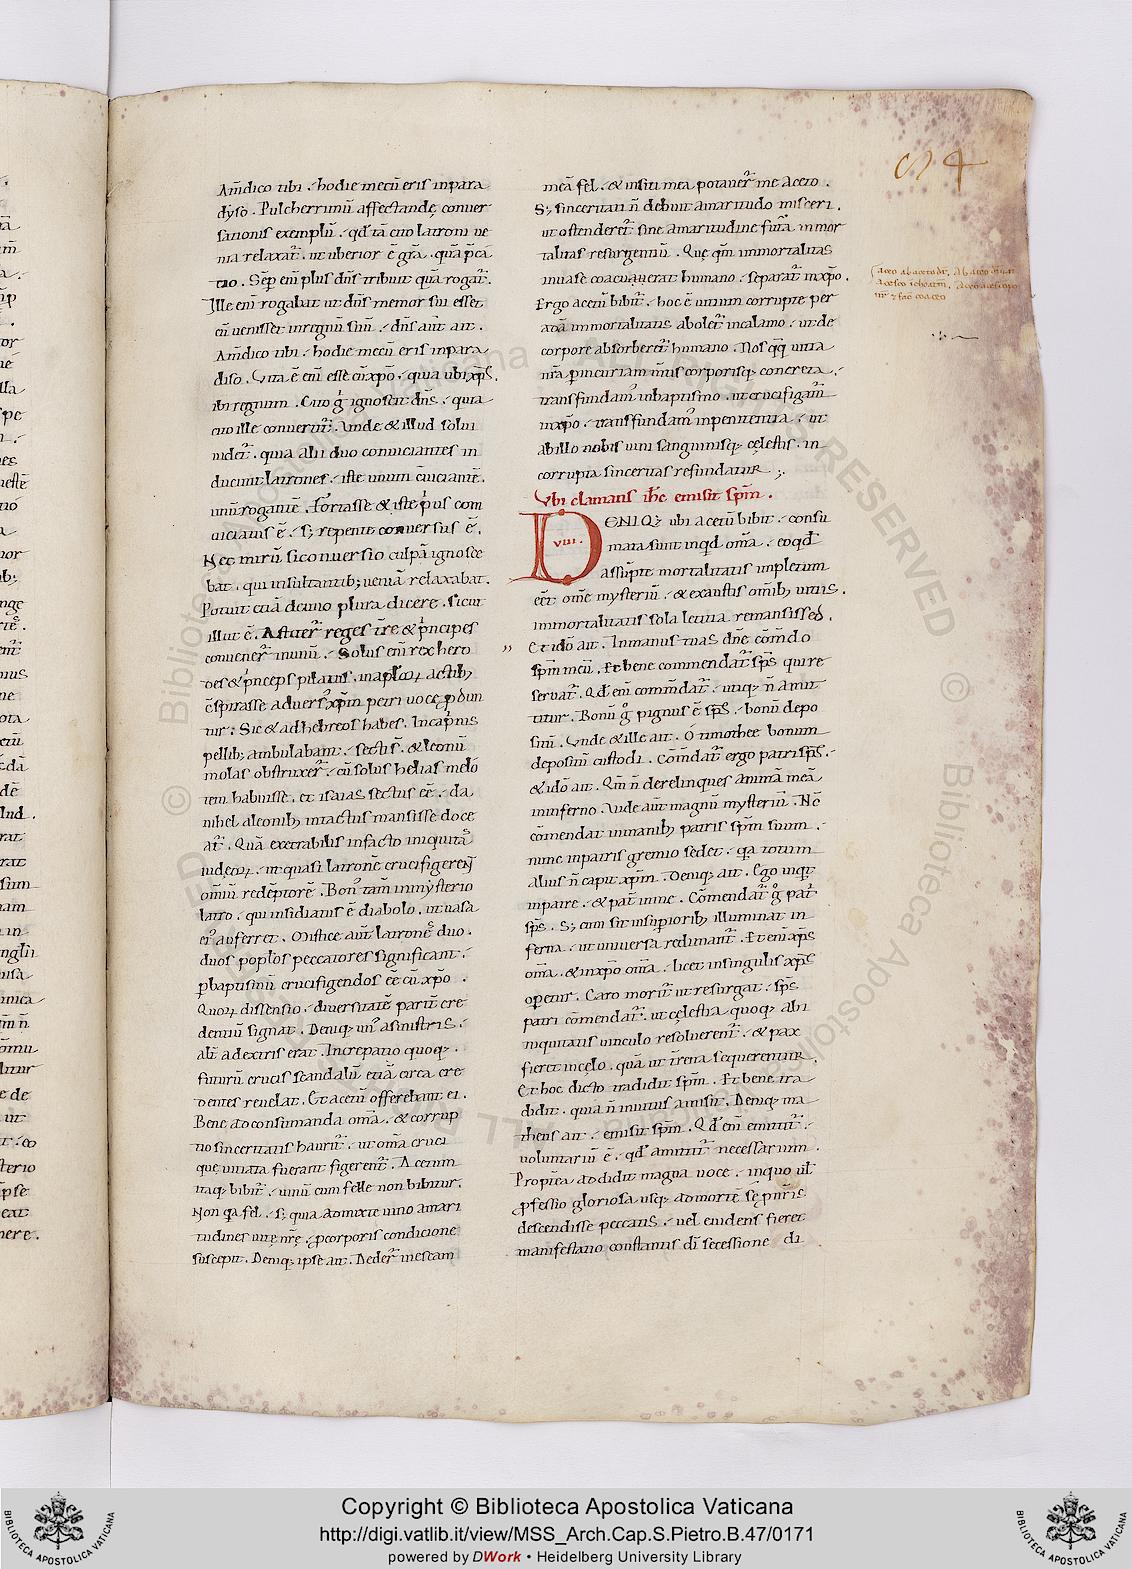 Am̄ dico tibi . hodie mecū eris in para
dyso . Pulcherrimū affectandę conver
sationis exemplū . qd̄ tā cito latroni ve
nia relaxat᷑ . ut uberior ē gr̄a . quā p̄ca
tio . Sēp eni plus dn̄s tribuit quā rogat᷑ .
Ille enī rogabat ut dn̄s memor sui esset
cū venisset in regnū suū . dn̄s aūt ait .
Am̄ dico tibi . hodie mecū eris in para
diso . Vita ē enī esse cū xp̄o . quia ubi xp̄s .
ibi regnum . Cito ḡ ignoscit dn̄s . quia
cito ille convertit᷑ . Unde & illud solvi
videt᷑ . quia alii duo conviciantes in
ducunt latrones . iste unum cviciantē .
unū rogantē . Fortasse & iste p̄us con
viciatus ē . s; repente conversus ē .
Nec mirū si conversio culpā ignosce
bat . qui insultantib; veniā relaxabat .
Potuit etiā de uno plura dicere . sicut
illut ē . Astiter᷑ reges tr̄e & p̄ncipes
convener᷑ in unū . Solus enī rex hero
des & p̄nceps pilatus . in aplōꝝ actib;
cspirasse adversꝰ xp̄m petri voce ꝓdun
tur . Sic & ad hebreos habes . In cap̄nis
pellib; ambulabant . secti s̄ . & leonū
molas obstruxer᷑ . cū solus helias melo
tem habuisse . et isaias sectus eē . da
nihel a leonib; intactus mansisse doce
at᷑ . Quā execrabilis in facto iniquitas
iudeoꝝ . ut quasi latronē crucifigerent
omniū redēptorē . Bonꝰ tam̄ in mysterio
latro . qui insidiatus ē diabolo . ut vasa
eiꝰ auferret . Mistice aūt latrones duo .
duos poplōs peccatores significant .
p baptismū crucifigendos eē cū xp̄o .
Quoꝝ dissensio . diversitatē partē cre
dentiū signat . Deniq; unꝰ a sinistris .
alt᷑ a dextris erat . Increpatio quoq; .
futurū crucis scandalū etiā circa cre
dentes revelat . Et acetū offerebant ei .
Bene ad consumanda om̄a . & corrup
tio sinceritatis haurit᷑ . ut om̄a cruci
que vitiata fuerant figerent᷑ . Acetum
itaq; bibit᷑ . vinū cum felle non bibitur .
Non qa fel . s; quia admixte vino amari
tudines vitę nr̄ę . ꝓ corporis condicione
suscepit . Deniq; ipse ait . Deder᷑ in escam
meā fel . & in siti mea potaver᷑ me aceto .
S; sinceritati n̄ debuit amaritudo misceri .
ut ostenderet᷑ sine amaritudine futā inmor
talitas resurgentiū . Que qm̄ immortalitas
in vase coacuavaerat humano . separat᷑ in xp̄o .
Ergo acetū bibit᷑ . hoc ē vitium corrupte per
adā immortalitatis abolet᷑ in calamo . ut de
corpore absorberet᷑ humano . Nos qq̄ vitia
nr̄a p incuriam mtis corporisq; concreta .
transfundamꝰ in baptismo . ut crucifigam̄
in xp̄o . transfundamꝰ in penitentia . ut
ab illo nobis vini sanguinisq; cęlestis . in
corrupta sinceritas refundatur ;.
Ubi clamans ih̄c emisit sp̄m .
VIII .
DENIQ; ubi acetū bibit . consū
mata sunt inqd̄ om̄a . eo qd̄
assūpte mortalitatis impletum
eēt om̄e mysteriū . & exaustis om̄ib; vitiis .
immortalitatis sola letitia remansisset .
Et idō ait . In manus tuas dn̄e cōmdo
sp̄m meū . Et bene commendat᷑ sp̄s qui re
servat᷑ . Qd̄ enī commdat᷑ . utiq; n̄ amit
titur . Bonū ḡ pignus ē sp̄s . bonū depo
situ . Unde & ille ait . O timothee bonum
depositū custodi . Cōmdat᷑ ergo patri sp̄s .
& idō ait . Qm̄ n̄ derelinques animā meā
in inferno . Vide aūt magnū mysteriū . Nc̄
cōmendat in manib; patris sp̄m suum .
nunc in patris gremio sedet . qa totum
alius n̄ capit xp̄m . Deniq; ait . Ego inqt
in patre . & pat᷑ in me . Cōmendat᷑ ḡ pat᷑
sp̄s . S; cum sit in supioribꝰ illuminat in
ferna . ut universa redimant᷑ . Et enī xp̄s
om̄a . & in xp̄o om̄a . licet in singulis xp̄s
operetur . Caro morit᷑ ut resurgat . sp̄s
patri cōmendat᷑ . ut cęlestia quoq; abi
niquitatis vinculo resolverent᷑ . & pax
fieret in cęlo . quā ut tr̄ena sequerentur .
Et hoc dicto tradidit sp̄m . Et bene tra
didit . quia n̄ invitus amisit . Deniq; ma
theus ait . emisit sp̄m . Qd̄ enī emittit᷑ .
voluntariū ē . qd̄ amittit᷑ necessarium .
Propt̄ea addidit magna voce . in quo ul̄
ꝓfessio gloriosa usq; ad mortē sę p nr̄is
descendisse peccatis . vel evidens fieret
manifestatio constantis dī secessione di